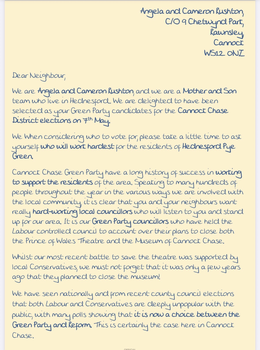 Angela and Cameron Rushton,
C/O 9 Chetwynd Part,
Rawnsley,
Cannock
WS12 0NZ
Dear Neighbour,
We are Angela and Cameron Rushton and we are a Mother and Son
team who live in Hednesford. We are delighted to have been
selected as your Green Party candidates for the Cannock Chase
District elections on 7th May.
We When considering who to vote for, please take a little time to ask
yourself who will work hardest for the residents of Hednesford Pye
Green.
Cannock Chase Green Party have a long history of success in working
to support the residents of the area. Speaking to many hundreds of
people throughout the year in the various ways we are involved with
the local community, it is clear that you and your neighbours want
really hard-working local councillors who will listen to you and stand
up for our area. It is our Green Party councillors who have held the
Labour controlled council to account over their plans to close both
the Prince of Wales Theatre and the Museum of Cannock Chase.
Whilst our most recent battle to save the theatre was supported by
local Conservatives, we must not forget that it was only a few years
ago that they planned to close the museum!
We have seen nationally and from recent county council elections
that both Labour and Conservatives are deeply unpopular with the
public, with many polls showing that it is now a choice between the
Green Party and Reform. This is certainly the case here in Cannock
Chase.